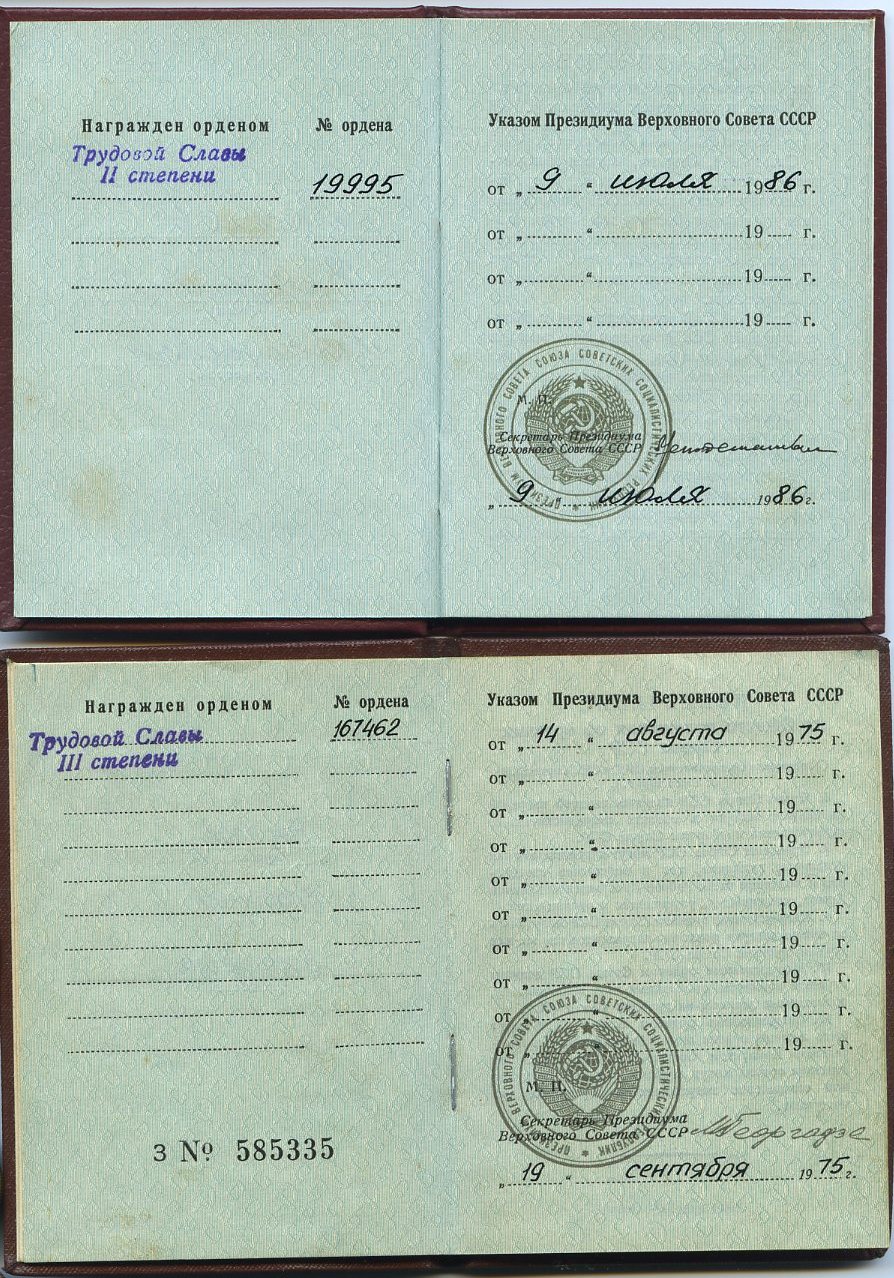 Награжден орденом № ордена
Трудовой Славы
II степени
19995
Указом Президиума Верховного Совета СССР
от „ 9 “ июля 1986 г.
от „ “ 19 г.
от „ “ 19 г.
от „ “ 19 г.
ПРЕЗИДИУМ ВЕРХОВНОГО СОВЕТА СОЮЗА СОВЕТСКИХ СОЦИАЛИСТИЧЕСКИХ РЕСПУБЛИК
М. П.
Секретарь Президиума
Верховного Совета СССР
„ 9 “ июля 1986 г.
Награжден орденом № ордена
Трудовой Славы
III степени
167462
З № 585335
Указом Президиума Верховного Совета СССР
от „ 14 “ августа 1975 г.
от „ “ 19 г.
от „ “ 19 г.
от „ “ 19 г.
от „ “ 19 г.
от „ “ 19 г.
от „ “ 19 г.
от „ “ 19 г.
от „ “ 19 г.
от „ “ 19 г.
ПРЕЗИДИУМ ВЕРХОВНОГО СОВЕТА СОЮЗА СОВЕТСКИХ СОЦИАЛИСТИЧЕСКИХ РЕСПУБЛИК
М. П.
Секретарь Президиума
Верховного Совета СССР М Георгадзе
„ 19 “ сентября 1975 г.